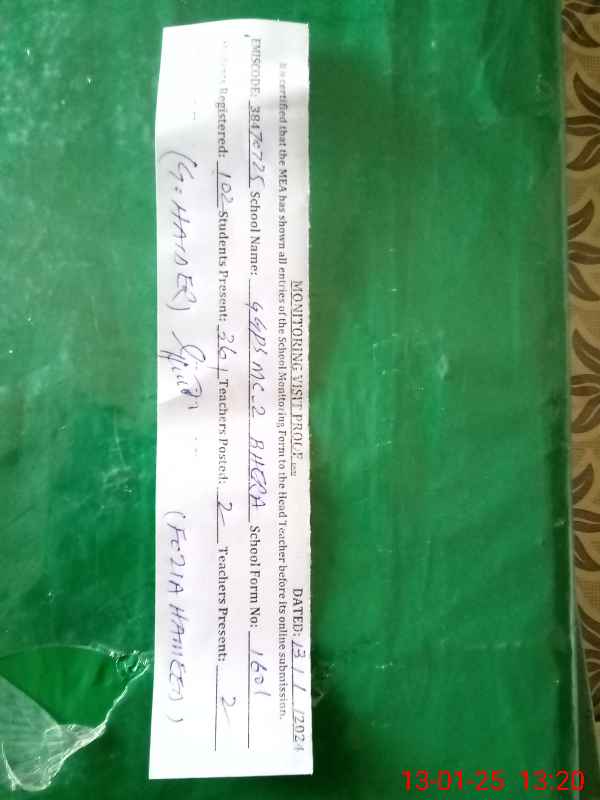 MONITORING VISIT PROOF
DATED: 13/1/2024
It is certified that the MEA has shown all entries of the School Monitoring Form to the Head Teacher before its online submission.
EMISCODE: 38470725 School Name: GGPS MC-2 BHERA School Form No: 1601
Registered: 102 Students Present: Teachers Posted: 2 Teachers Present: 2
(G. HAIDER) (FOZIA HAMEED)
13-01-25 13:20